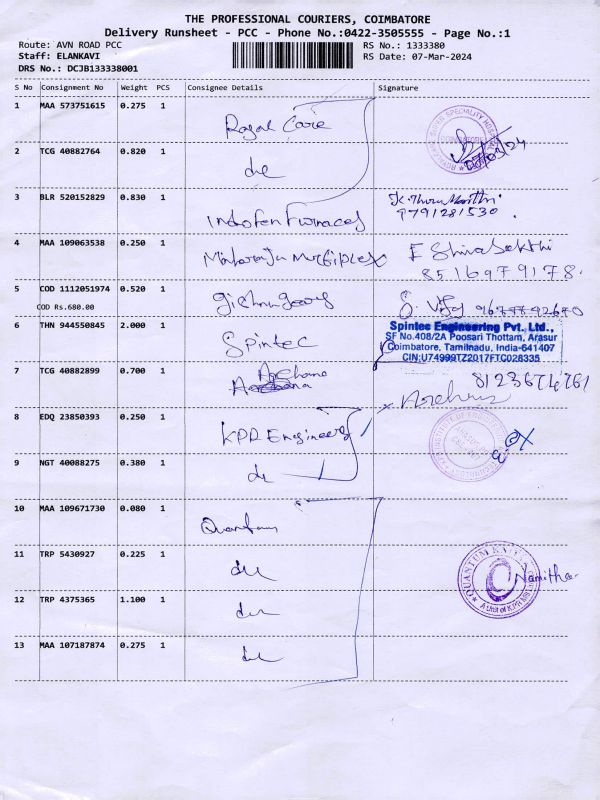 THE PROFESSIONAL COURIERS, COIMBATORE
Delivery Runsheet - PCC - Phone No.:0422-3505555 - Page No.:1
Route: AVN ROAD PCC
RS No.: 1333380
Staff: ELANKAVI
RS Date: 07-Mar-2024
DRS No.: DCJB133338001
S No Consignment No Weight PCS Consignee Details Signature
1 MAA 573751615 0.275 1 Royal Care
2 TCG 40882764 0.820 1
3 BLR 520152829 0.830 1 Indofen Furnaces
4 MAA 109063538 0.250 1 Maharaja Multiplex
8516979178.
5 COD 1112051974 0.520 1
COD Rs.680.00
6 THN 944550845 2.000 1 Spintec
Spintec Engineering Pvt. Ltd.,
SF No.408/2A Poosari Thottam, Arasur
Coimbatore, Tamilnadu, India-641407
CIN:U74999TZ2017FTC028335
7 TCG 40882899 0.700 1 Archana
8 EDQ 23850393 0.250 1 KPR Engineering
9 NGT 40088275 0.380 1
10 MAA 109671730 0.080 1 Quantum
11 TRP 5430927 0.225 1
12 TRP 4375365 1.100 1
Namitha
13 MAA 107187874 0.275 1